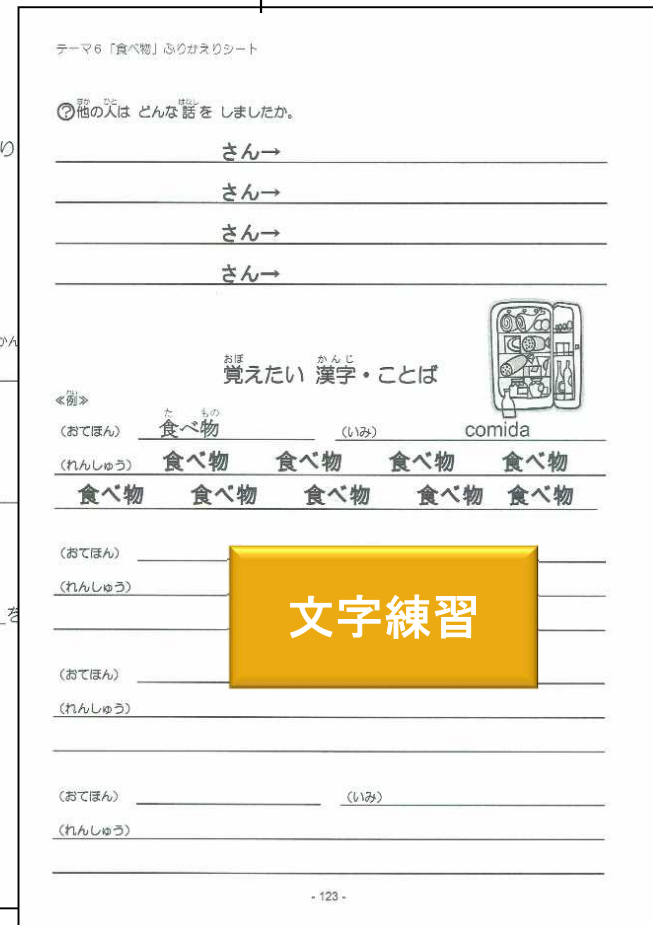 テーマ6「食べ物」ふりかえりシート
?他の人は どんな話を しましたか。
さん→
さん→
さん→
さん→
覚えたい 漢字・ことば
≪例≫
(おてほん) 食べ物 (いみ) comida
(れんしゅう) 食べ物 食べ物 食べ物 食べ物
食べ物 食べ物 食べ物 食べ物 食べ物
(おてほん)
(れんしゅう)
文字練習
(おてほん)
(れんしゅう)
(おてほん) (いみ)
(れんしゅう)
- 123 -